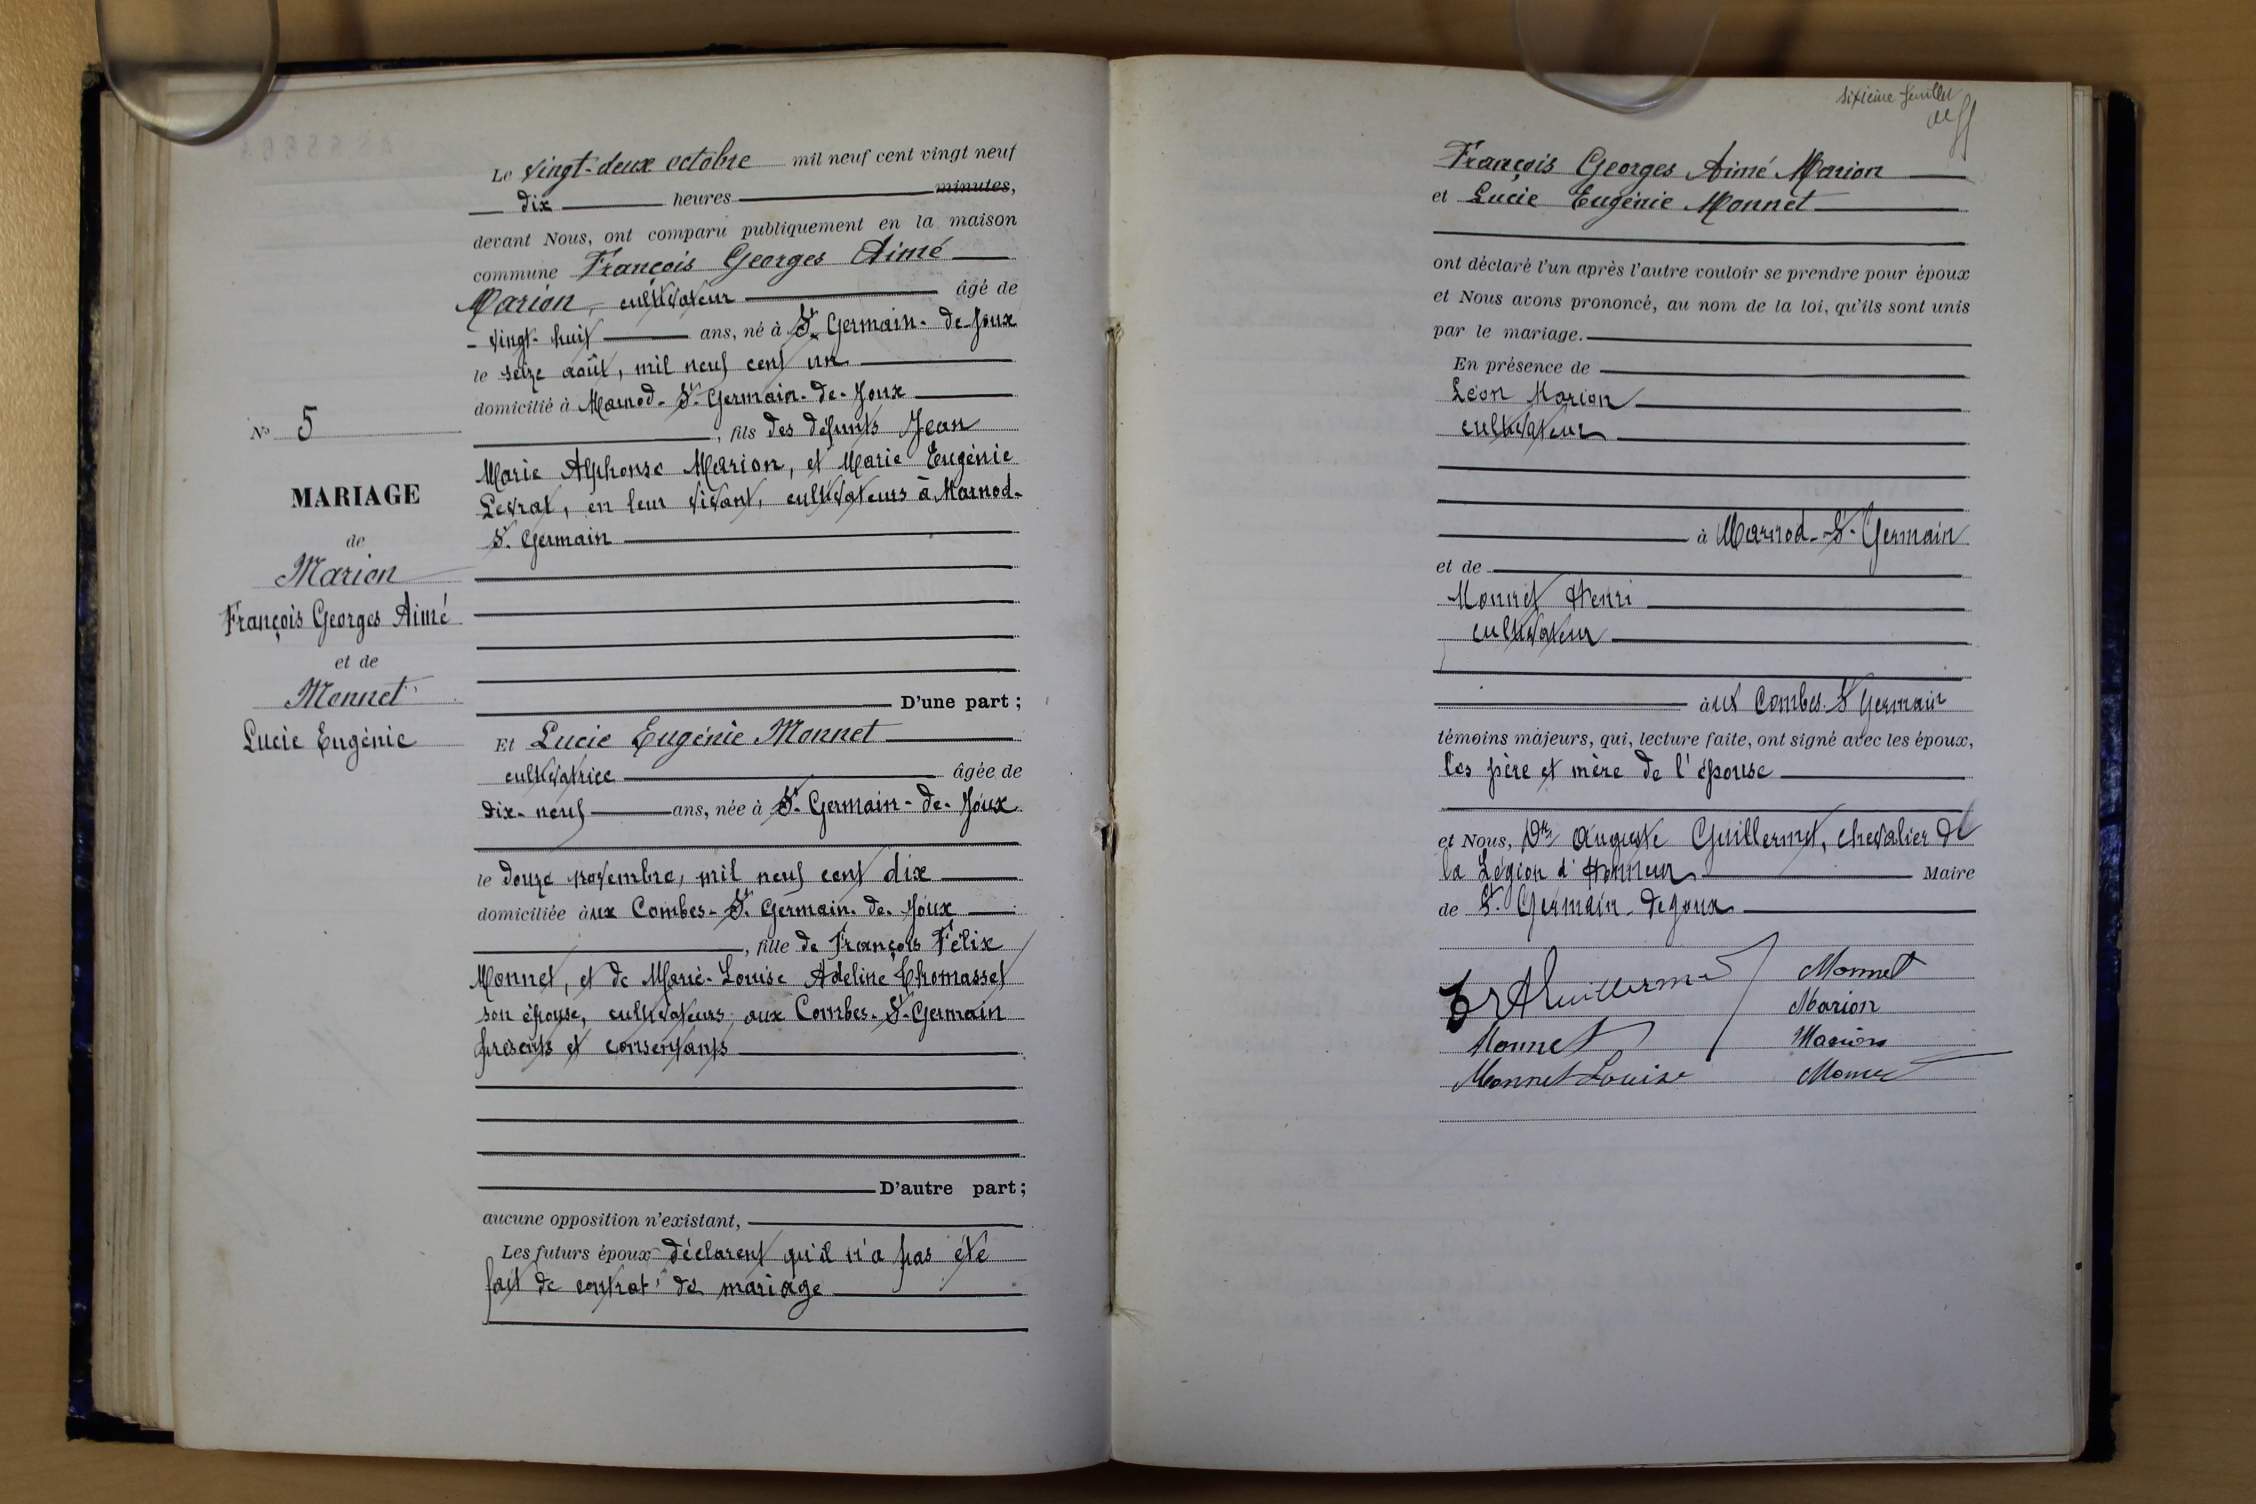 N° 5
MARIAGE
de
Marion
François Georges Aimé
et de
Monnet
Lucie Eugénie
Le vingt-deux octobre mil neuf cent vingt neuf
dix heures minutes,
devant Nous, ont comparu publiquement en la maison
commune François Georges Aimé
Marion, cultivateur âgé de
vingt-huit ans, né à St. Germain-de-Joux
le seize août, mil neuf cent un
domicilié à Marnod-St. Germain-de-Joux
, fils des défunts Jean
Marie Alphonse Marion, et Marie Eugénie
Levrat, en leur vivant, cultivateurs à Marnod-
St. Germain
D'une part ;
Et Lucie Eugénie Monnet
cultivatrice âgée de
dix-neuf ans, née à St. Germain-de-Joux
le douze novembre, mil neuf cent dix
domiciliée àux Combes-St. Germain-de-Joux
, fille de François Félix
Monnet, et de Marie-Louise Adeline Thomasset
son épouse, cultivateurs, aux Combes-St-Germain
présents et consentants
D'autre part ;
aucune opposition n'existant,
Les futurs époux déclarent qu'il n'a pas été
fait de contrat de mariage
sixième feuillet
François Georges Aimé Marion
et Lucie Eugénie Monnet
ont déclaré l'un après l'autre vouloir se prendre pour époux
et Nous avons prononcé, au nom de la loi, qu'ils sont unis
par le mariage.
En présence de
Léon Marion
cultivateur
à Marnod-St-Germain
et de
Monnet Henri
cultivateur
àux Combes-St Germain
témoins majeurs, qui, lecture faite, ont signé avec les époux,
les père et mère de l'épouse
et Nous, Dr. Auguste Guillermet, chevalier de
la Légion d'Honneur Maire
de St. Germain-de-joux
Dr AGuillermet
Monnet
Marion
Monnet
Marion
Monnet Louise
Monnet